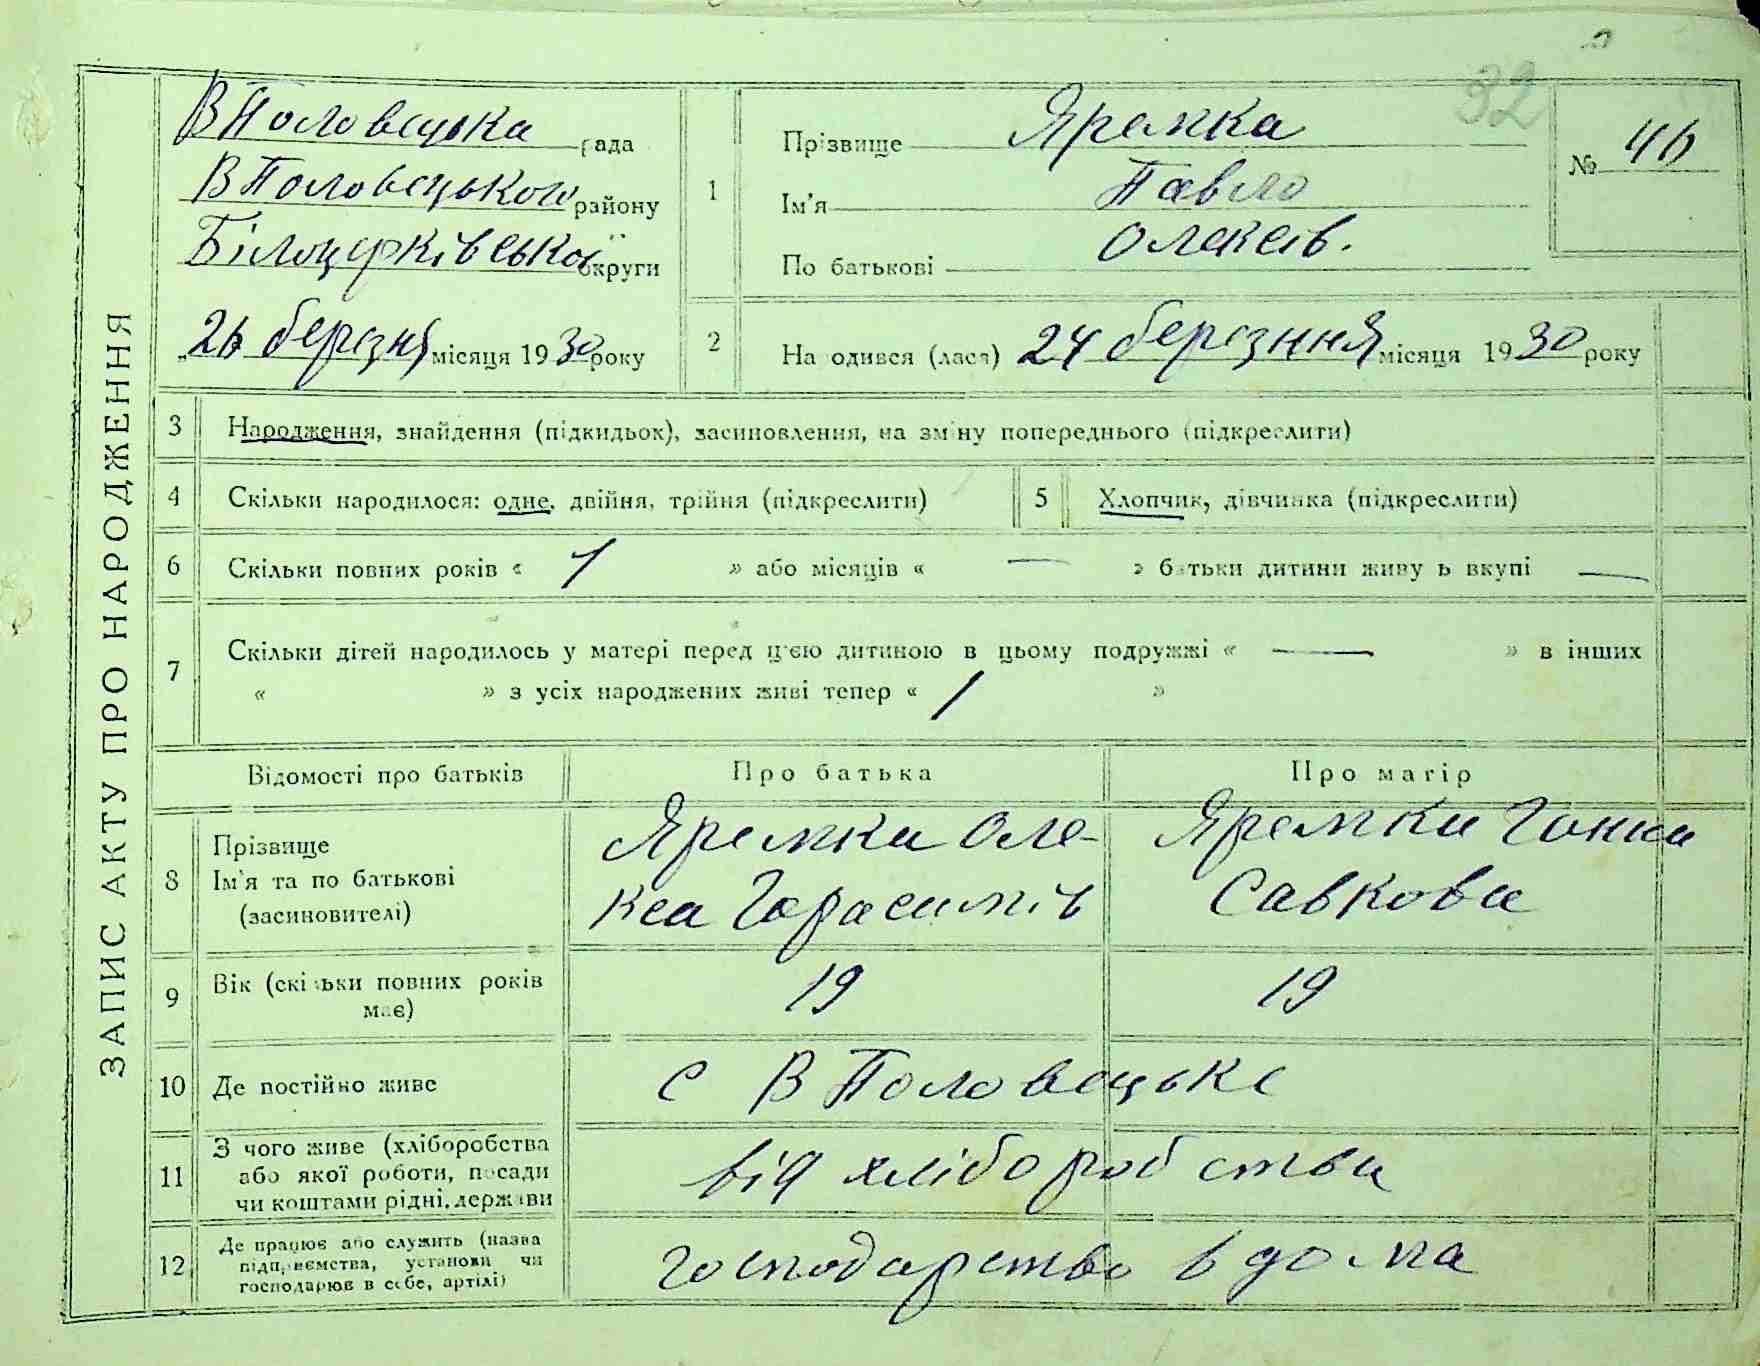 32
ЗАПИС АКТУ ПРО НАРОДЖЕННЯ
ВПоловецька рада
ВПоловецького району
Білоцерківської округи
„26 березня місяця 1930 року
1
Прізвище Яремка
Ім'я Павло
По батькові Олексів.
№ 46
2
Народився (лася) 24 березння місяця 1930 року
3 Народження, знайдення (підкидьок), засиновлення, на зміну попереднього (підкреслити)
4 Скільки народилося: одне, двійня, трійня (підкреслити) 5 Хлопчик, дівчинка (підкреслити)
6 Скільки повних років « 1 » або місяців « — » батьки дитини живуть вкупі —
7 Скільки дітей народилось у матері перед цією дитиною в цьому подружжі « — » в інших
« » з усіх народжених живі тепер « 1 »
Відомості про батьків Про батька Про матір
8 Прізвище
Ім'я та по батькові
(засиновителі)
Яремка Оле-
кса Гарасимів
Яремки Ганна
Савкова
9 Вік (скільки повних років
має)
19 19
10 Де постійно живе с ВПоловецьке
11 З чого живе (хліборобства
або якої роботи, посади
чи коштами рідні, держави
від хліборобства
12 Де працює або служить (назва
підприємства, установи чи
господарює в себе, артілі)
господарство вдома